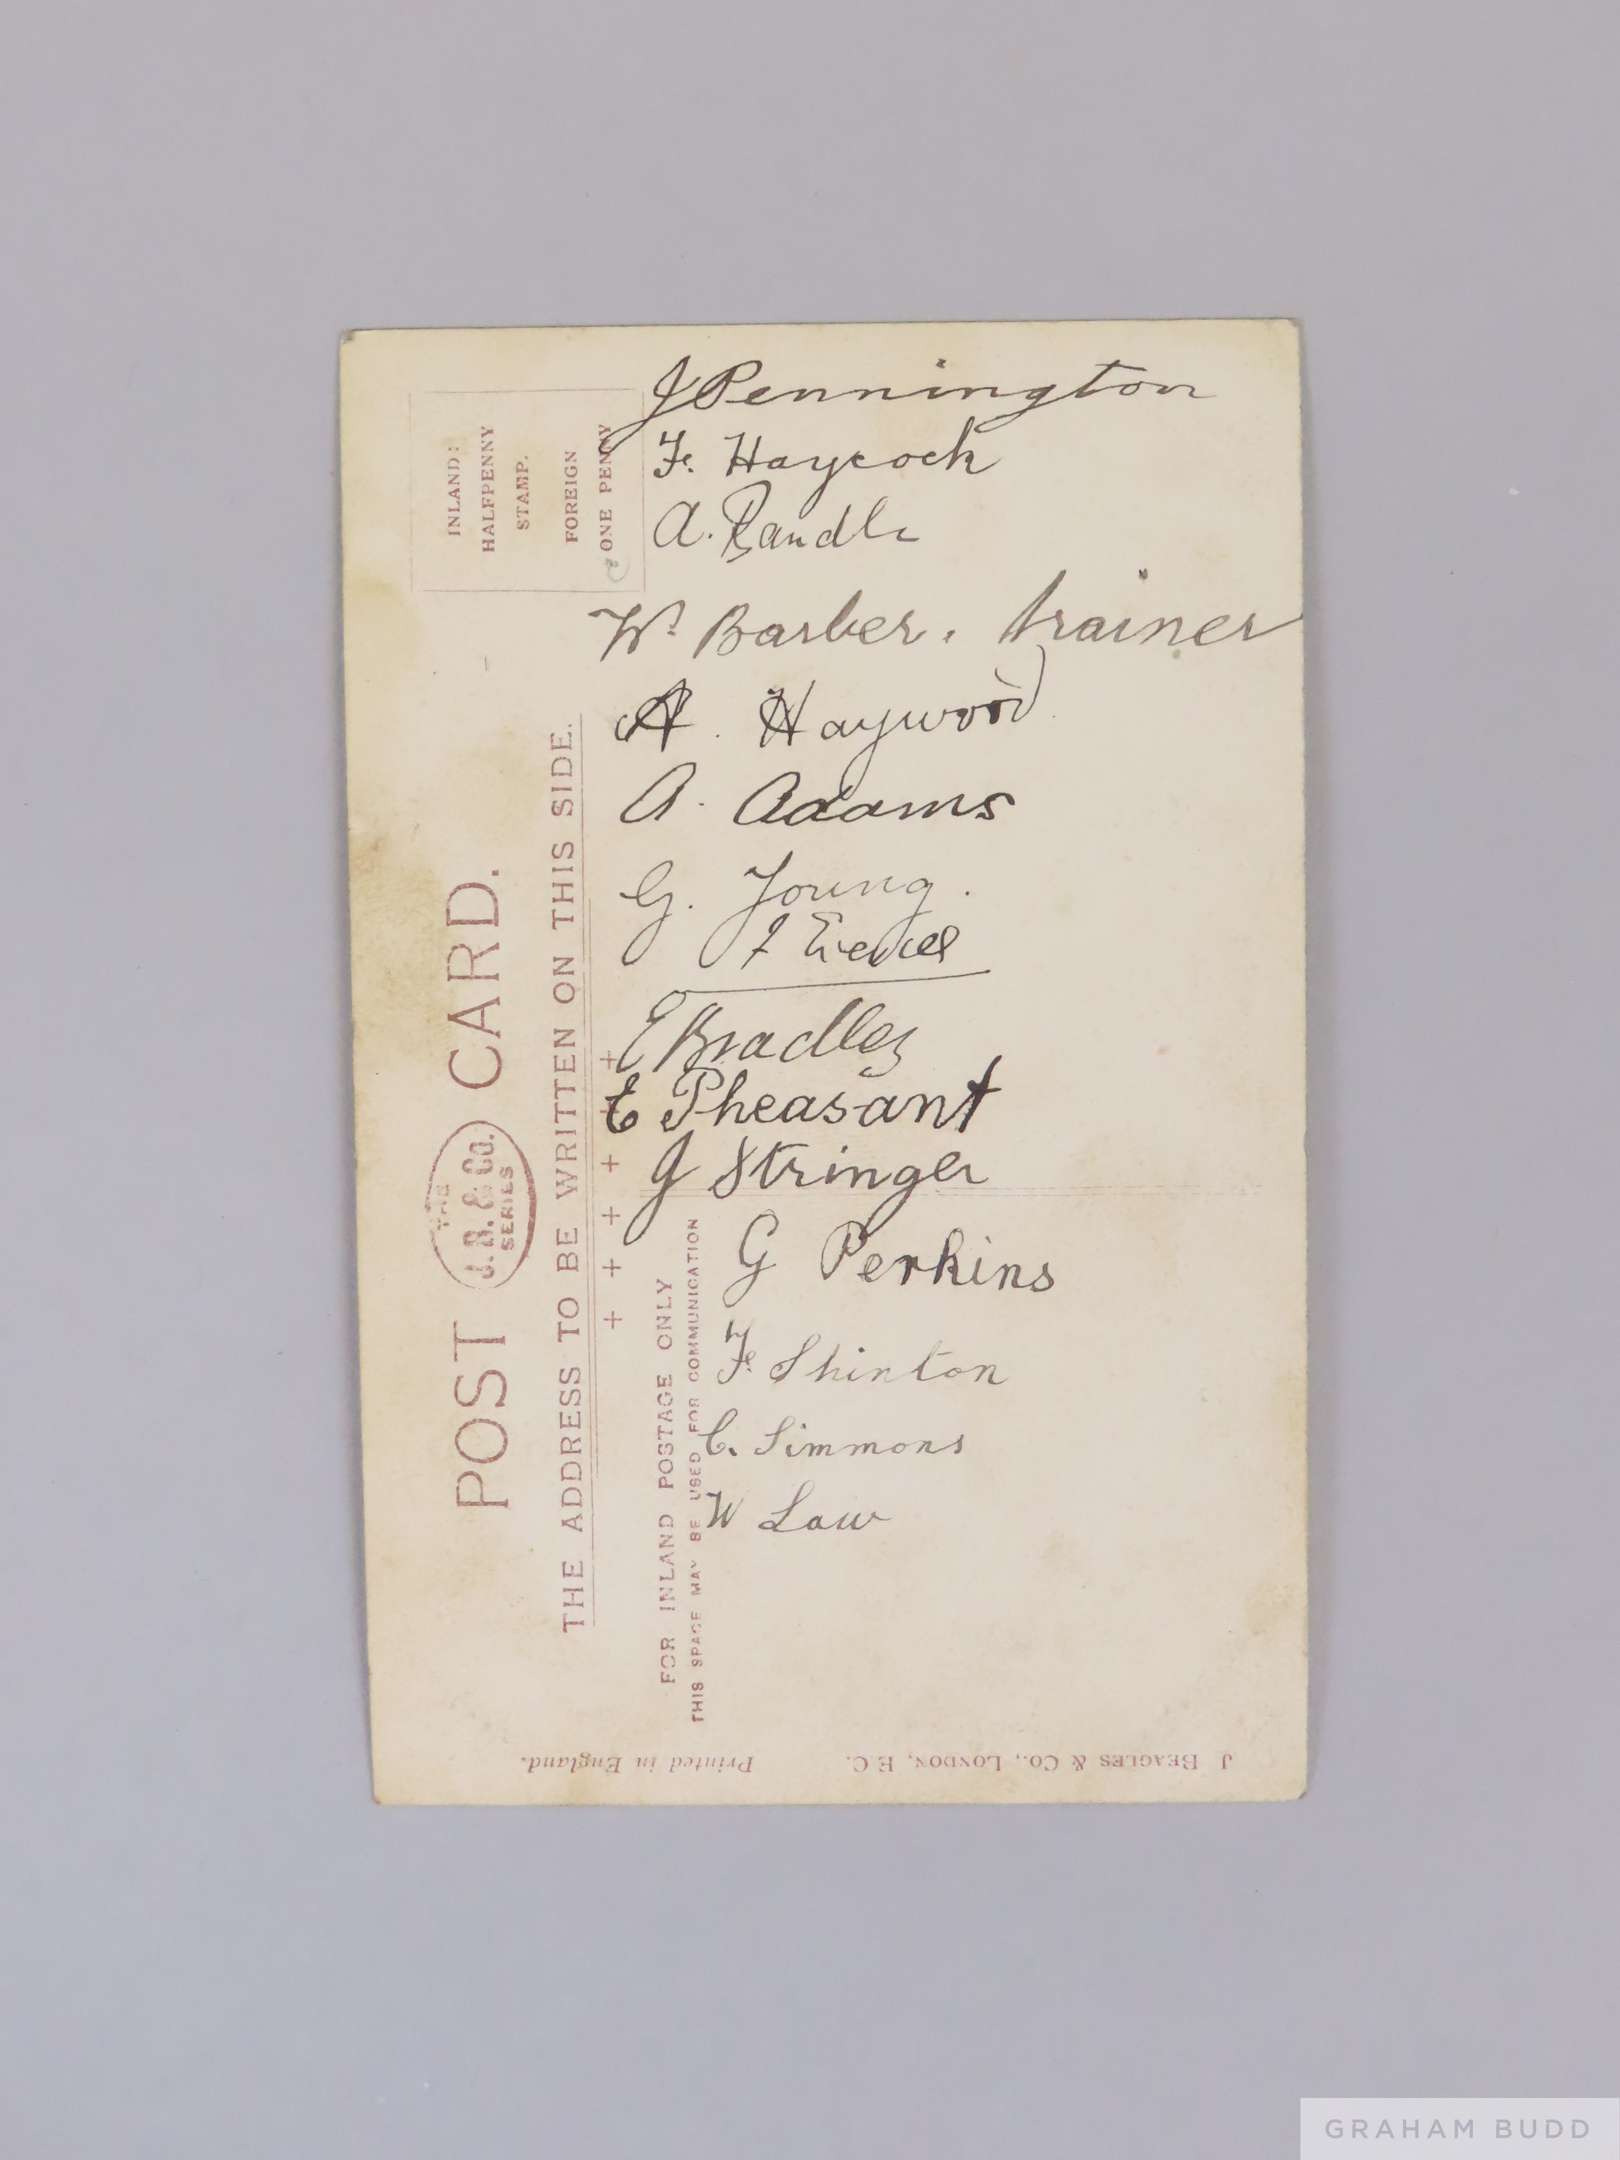 J Pennington
F. Haycock
A. Randle
Wm Barber. trainer
A. Haywood
A. Adams
G. Young.
E Bradley
E Pheasant
J Stringer
G Perkins
F. Shinton
C. Simmons
W Law
INLAND:
HALFPENNY
STAMP.
FOREIGN
ONE PENNY
POST CARD.
THE
J.B.& Co.
SERIES
THE ADDRESS TO BE WRITTEN ON THIS SIDE.
+ + + + + +
FOR INLAND POSTAGE ONLY
THIS SPACE MAY BE USED FOR COMMUNICATION
J BEAGLES & Co., LONDON, E.C.
Printed in England.
GRAHAM BUDD